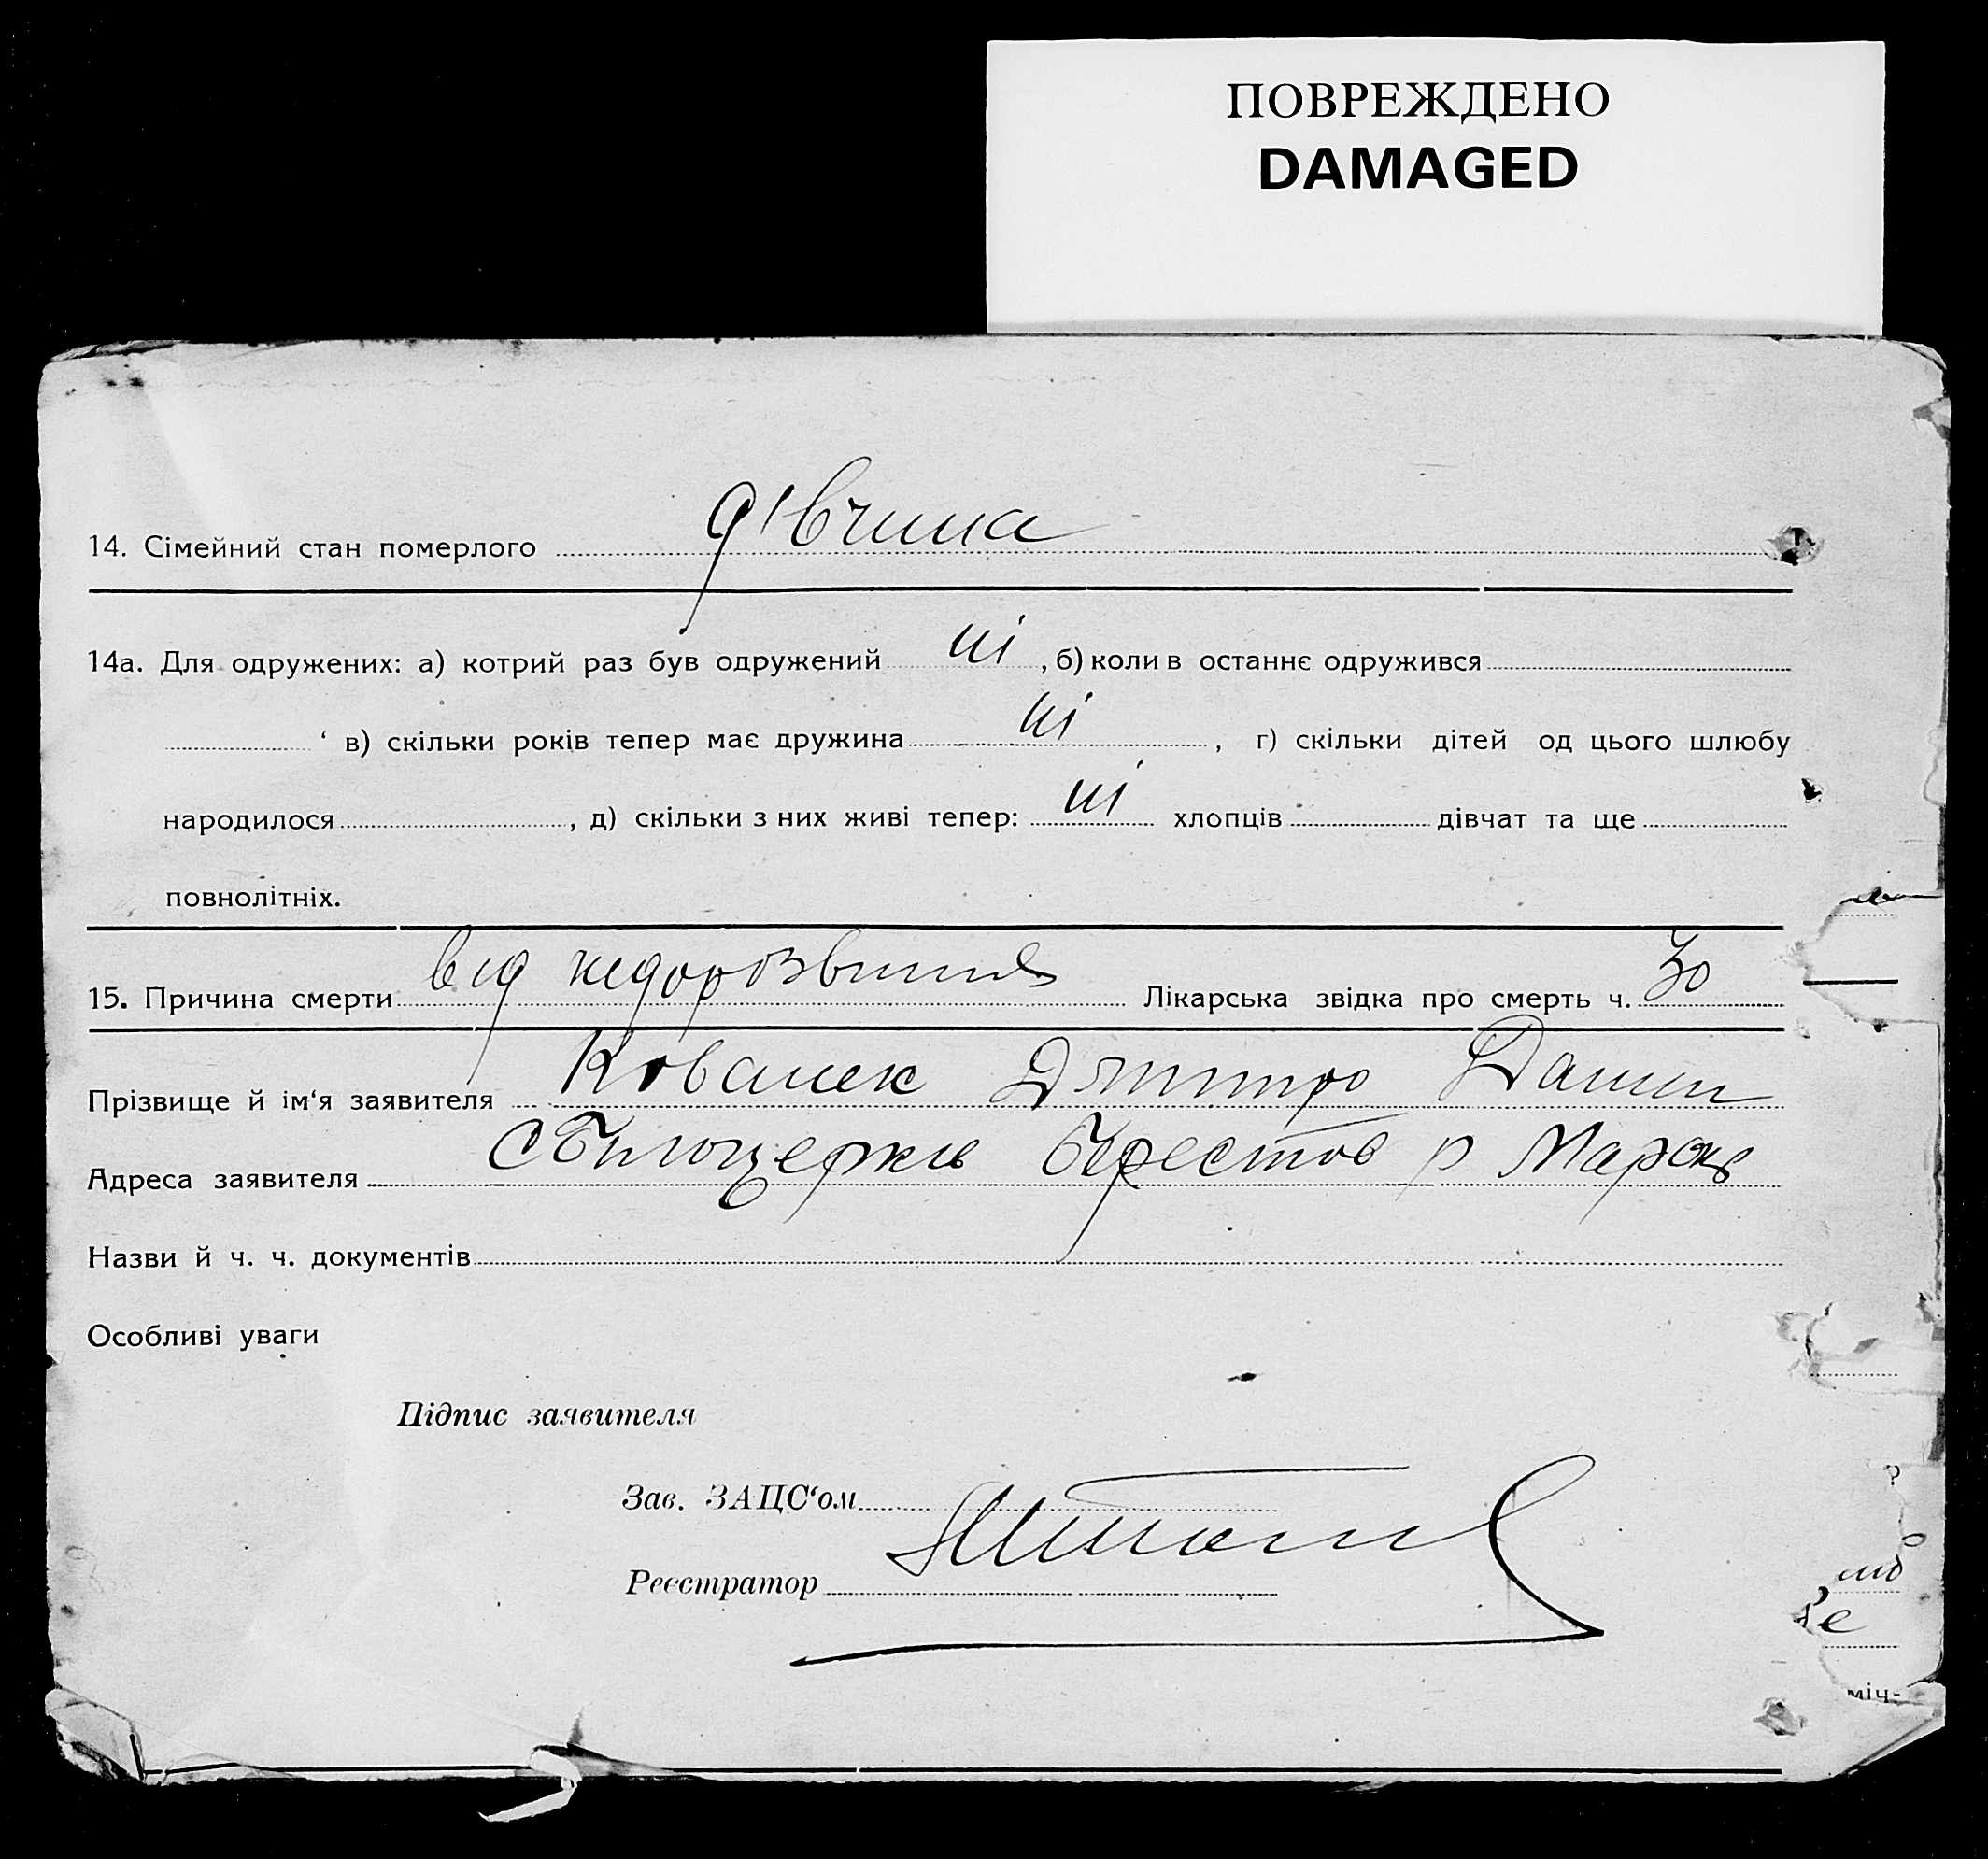 ПОВРЕЖДЕНО
DAMAGED
14. Сімейний стан померлого дівчина
14а. Для одружених: а) котрий раз був одружений ні, б) коли в останнє одружився
‘ в) скільки років тепер має дружина ні, г) скільки дітей од цього шлюбу
народилося, д) скільки з них живі тепер: ні хлопців дівчат та ще
повнолітніх.
15. Причина смерти від недорозвиття Лікарська звідка про смерть ч. 30
Прізвище й ім‘я заявителя Дмитро Данил
Адреса заявителя с Білоцерків р
Назви й ч. ч. документів
Особливі уваги
Підпис заявителя
Зав. ЗАЦС‘ом
Реєстратор
міч-